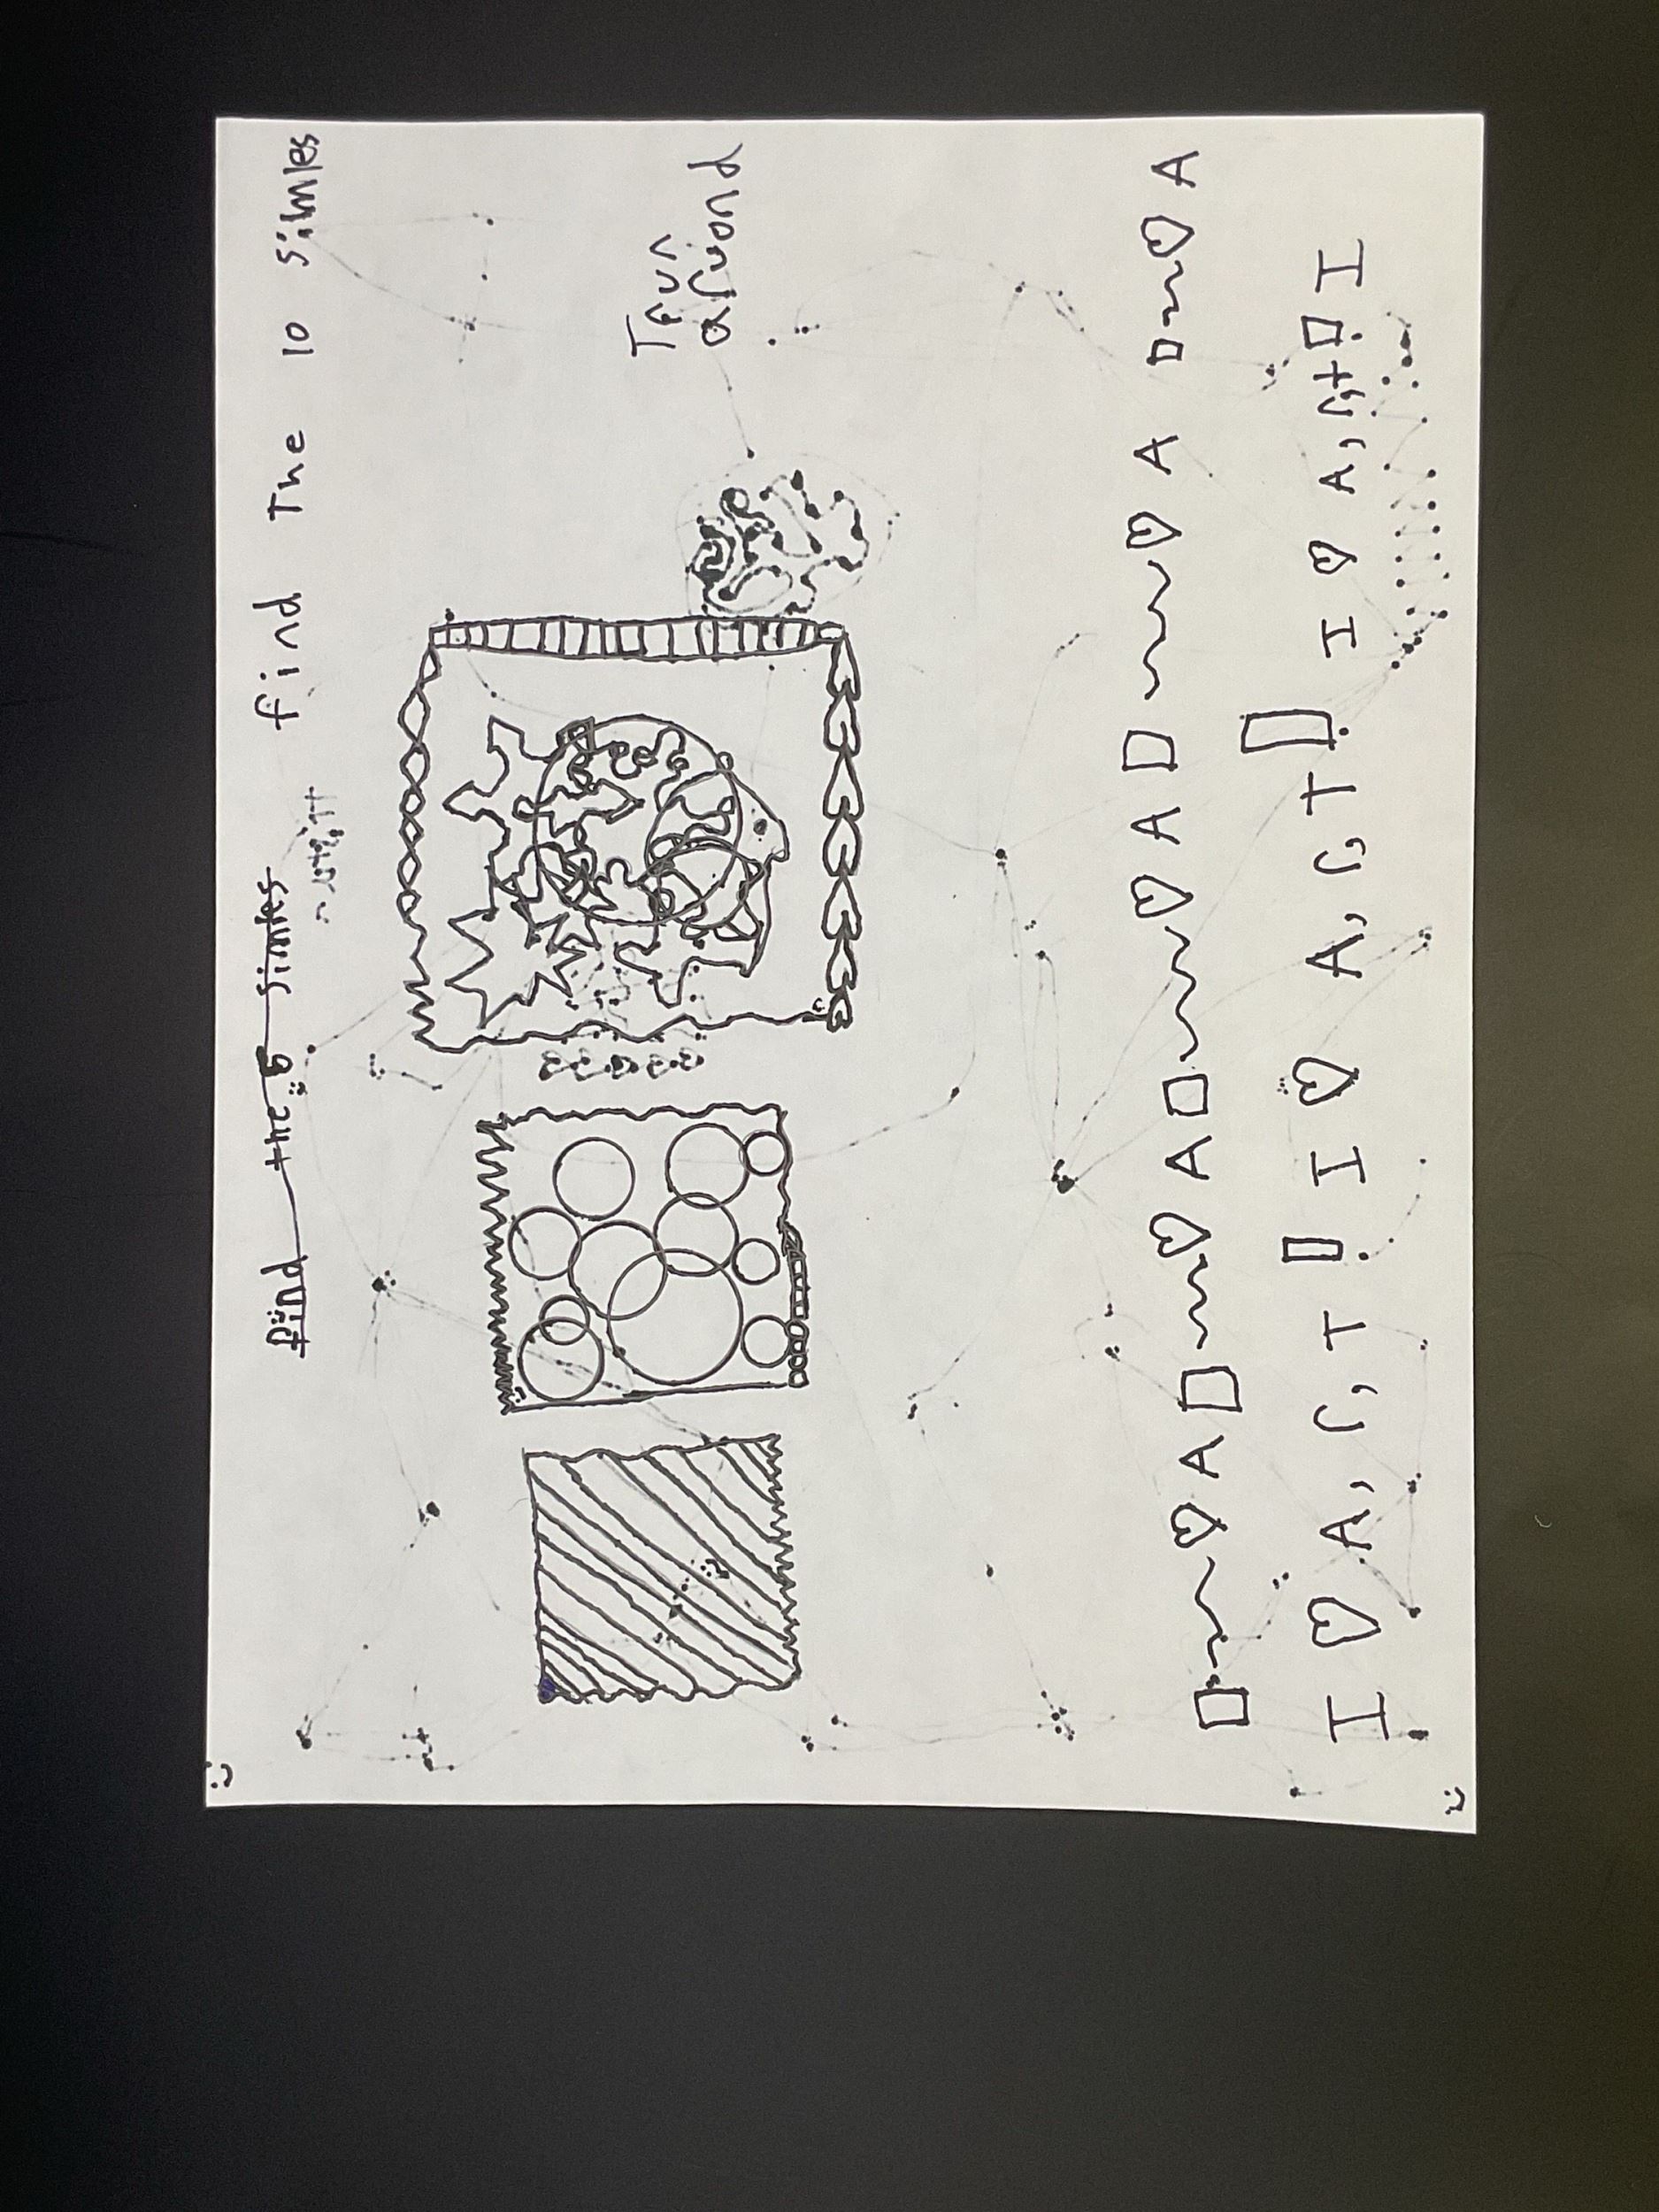 find the 5 simles find The 10 simles
Trun
aruond
□~♡A□~♡A□~♡A□~♡A□~♡A
I ♡ A, r, T! I ♡ A, r, T! I ♡ A, r, t! I